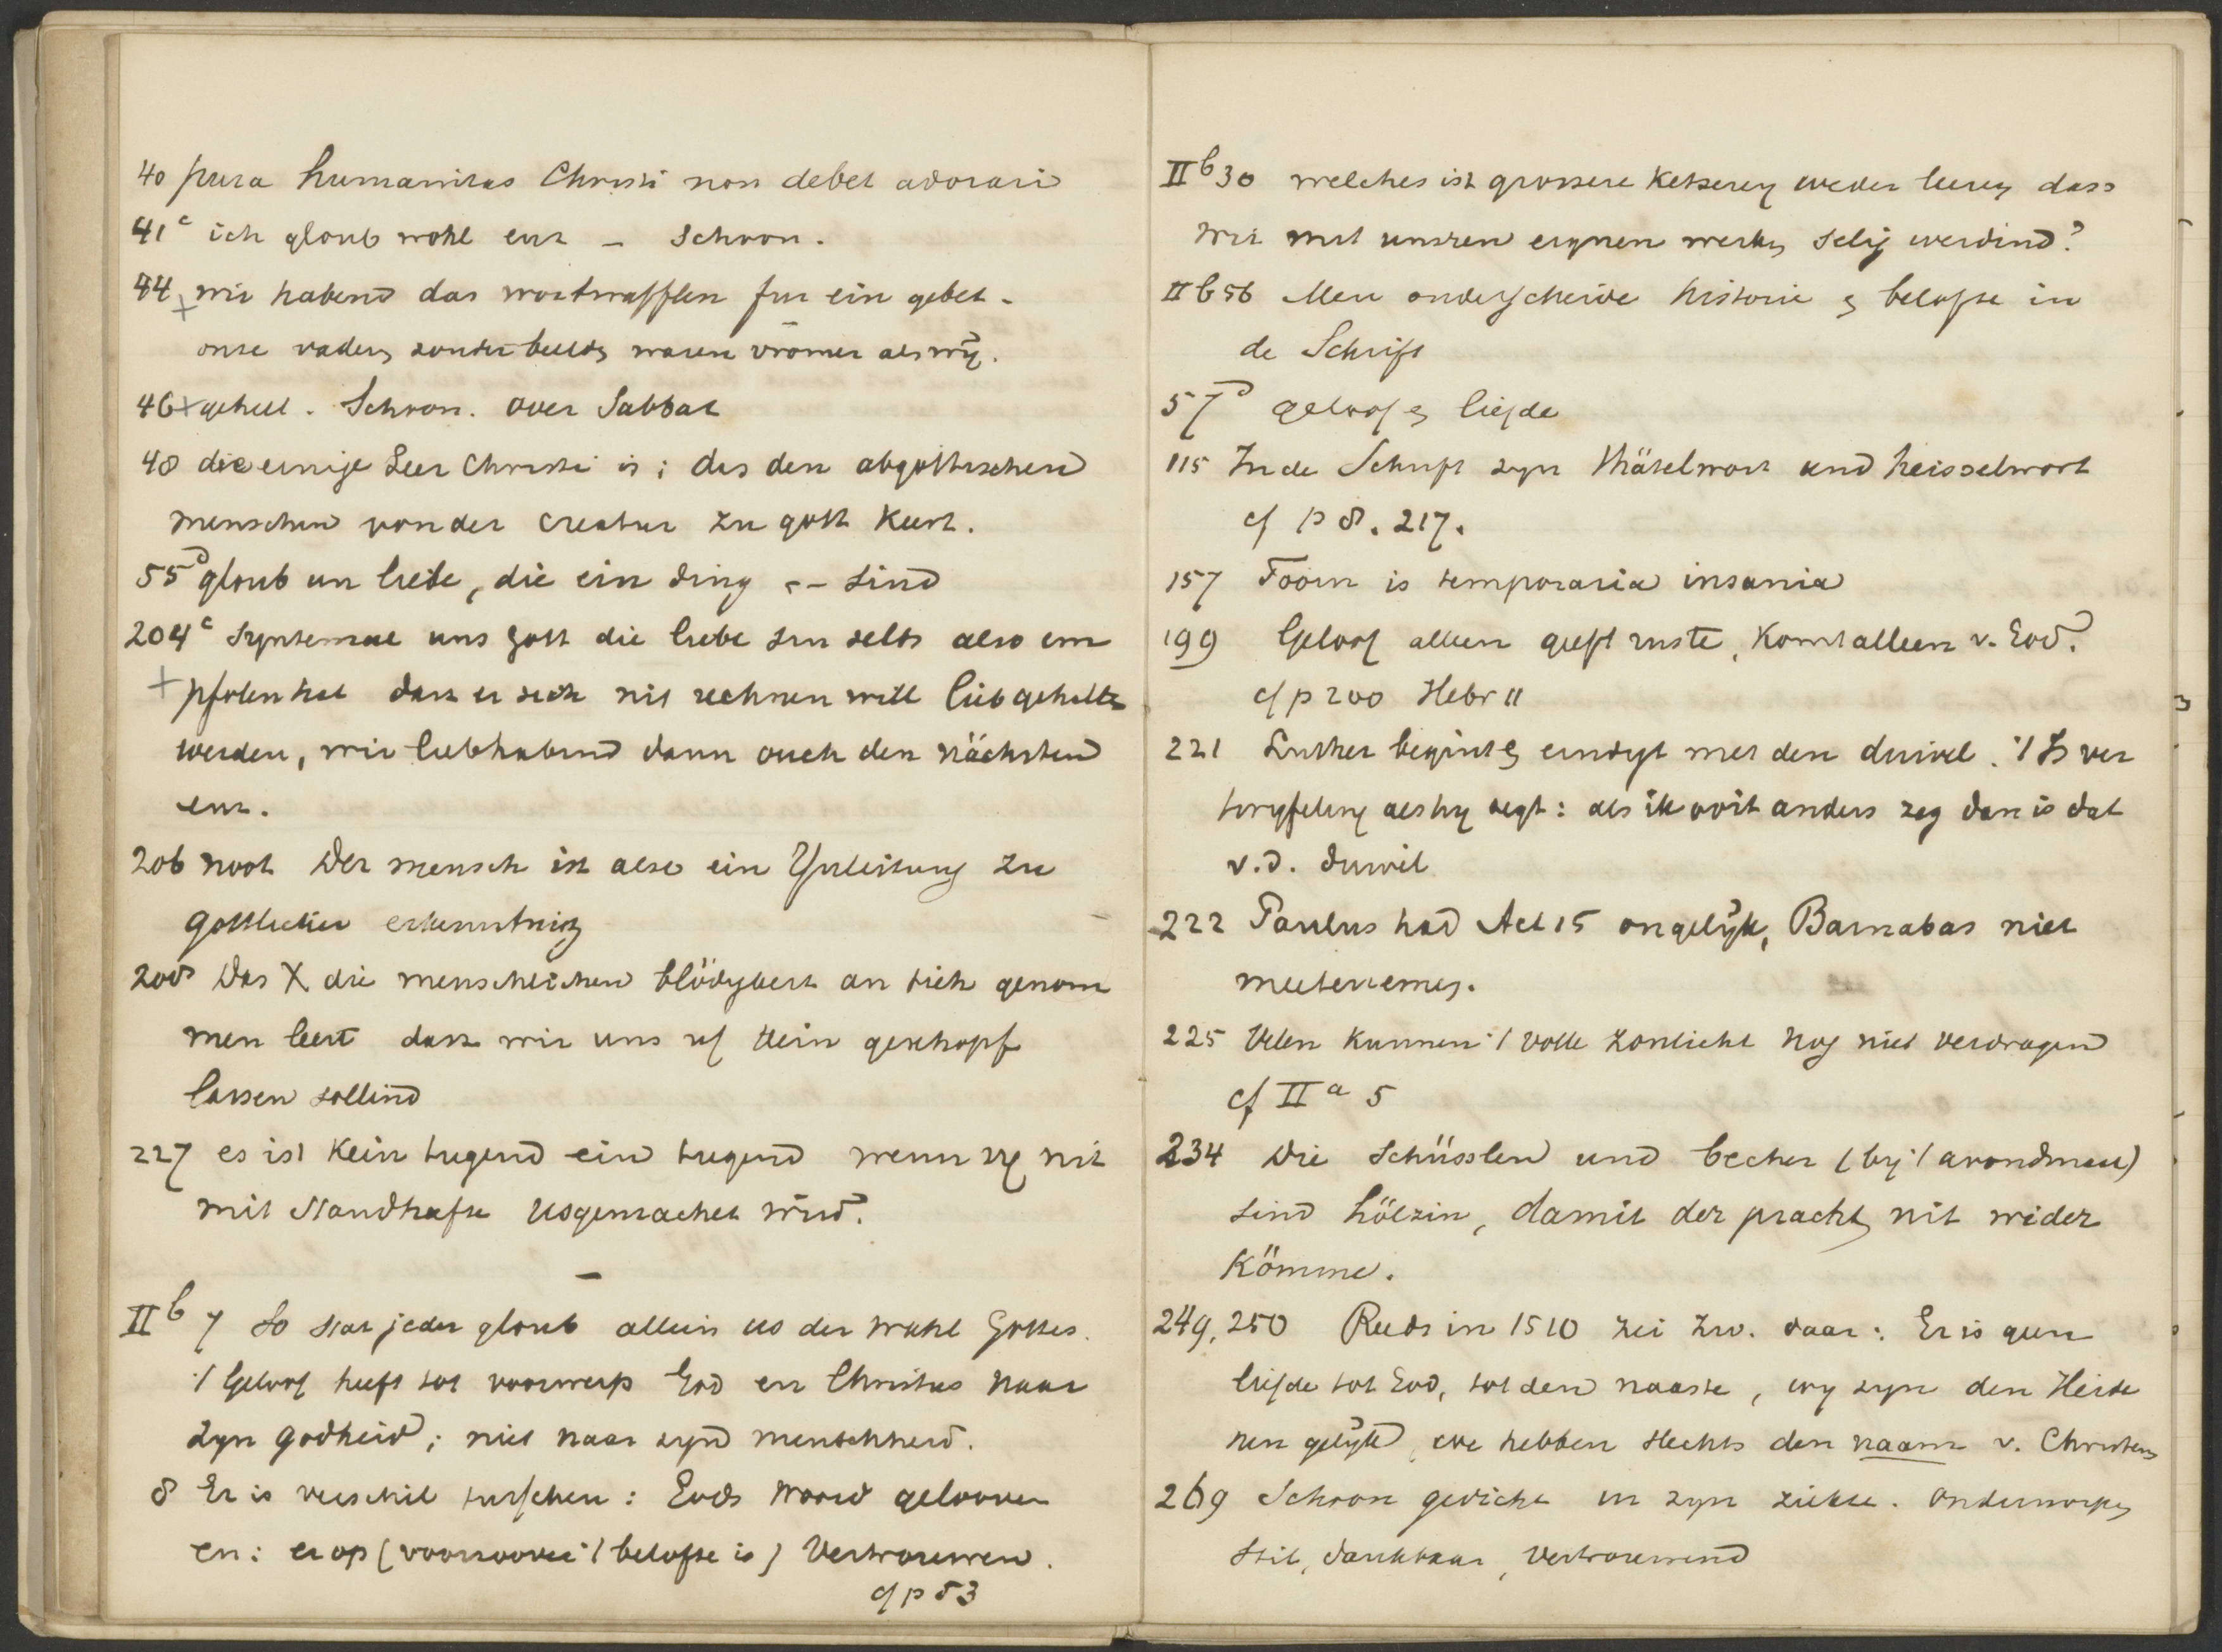 40 pura humanitas Christi non debet adorari
41c ich gloub wohl enz – Schoon.
44 wir habend das wortwafflen fur ein gebet –
onse vaders zonder beelds waren vromer als wij.
46+ geheel. Schoon. over Sabbat
48 die einige Leer Christi is; das den abgottischen
menschen von der creatur zu gott keert.
55d gloub un liebe, die ein ding –– sind
204c Syntemal uns gott die liebe sin selbs also em
+ pfolen hat dass er sich nit rechnen will lieb gehalten
werden, wir liebhabend dann ouch den nächsten
enz.
206 noot Der mensch ist also ein Ynleitung zu
gottlicher erkenntnis
208 Das X die menschlichen blödykeit an sich genom
men leert dass wir uns uf kein geschopf
lassen sollind
227 es ist kein tugend ein tugend wenn sy nit
mit standhafte usgemachet wird.
–
IIb 7 So stat jeder gloub allein us der wahl Gottes.
't Geloof heeft tot voorwerp God en Christus naar
zyn godheid; niet naar zyn menschheid.
8 Er is verschil tusschen: Gods woord gelooven
en: er op (voorzoover 't belofte is) Vertrouwen.
cf p 53
IIb 30 welches ist grossere ketserey weder leeren dass
wir mit unsren eygnen werken selig werdind?
IIb 56 Men onderscheide historie en belofte in
de Schrift
57d geloof en liefde
115 In de Schrift zyn Thätelwort und heisselwort
cf p 8. 217.
157 Toorn is temporaria insania
199 Geloof alleen geeft ruste, komt alleen v. God.
cf p 200 Hebr 11
221 Luther begint en eindigt met den duivel. 't Is ver
twyfeling als hy zegt: als ik ooit anders zeg dan is dat
v.d. duivel
222 Paulus had Act 15 ongelijk, Barnabas niet
meetenemen.
225 Velen kunnen 't volle zonlicht nog niet verdragen
cf II a 5
234 Die Schüsslen und becher (by 't avondmaal)
sind hölzin, damit der pracht nit wider
kömme.
249, 250 Reeds in 1510 zei Zw. daar: Er is geen
liefde tot God, tot den naaste, wy zyn den Heide
nen gelijk, we hebben slechts den naam v. Christen
269 Schoon gedicht in zyn ziekte. onderworpen
stil, dankbaar, vertrouwend